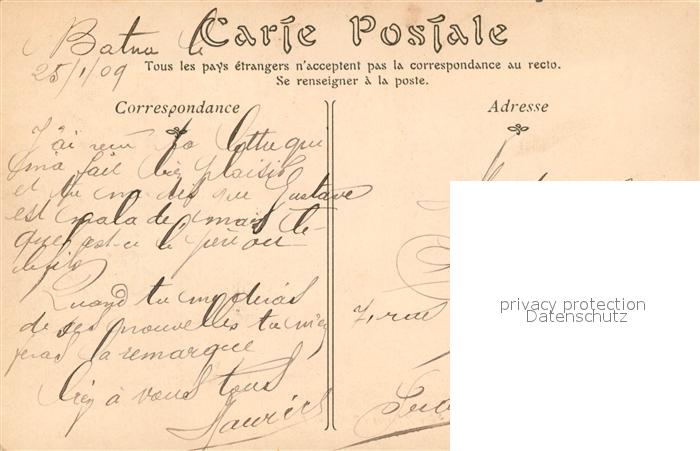 Batna le
25/1/09
Carte Postale
Tous les pays étrangers n'acceptent pas la correspondance au recto.
Se renseigner à la poste.
Correspondance
J'ai reçu ta lettre qui
m'a fait bien plaisir
et tu me dis que Gustave
est malade mais le
quel est-ce le père ou
le fils
Quand tu me diras
de ses nouvelles tu m'en
feras la remarque
Bien à vous tous
Maurice
Adresse
7, rue
privacy protection
Datenschutz